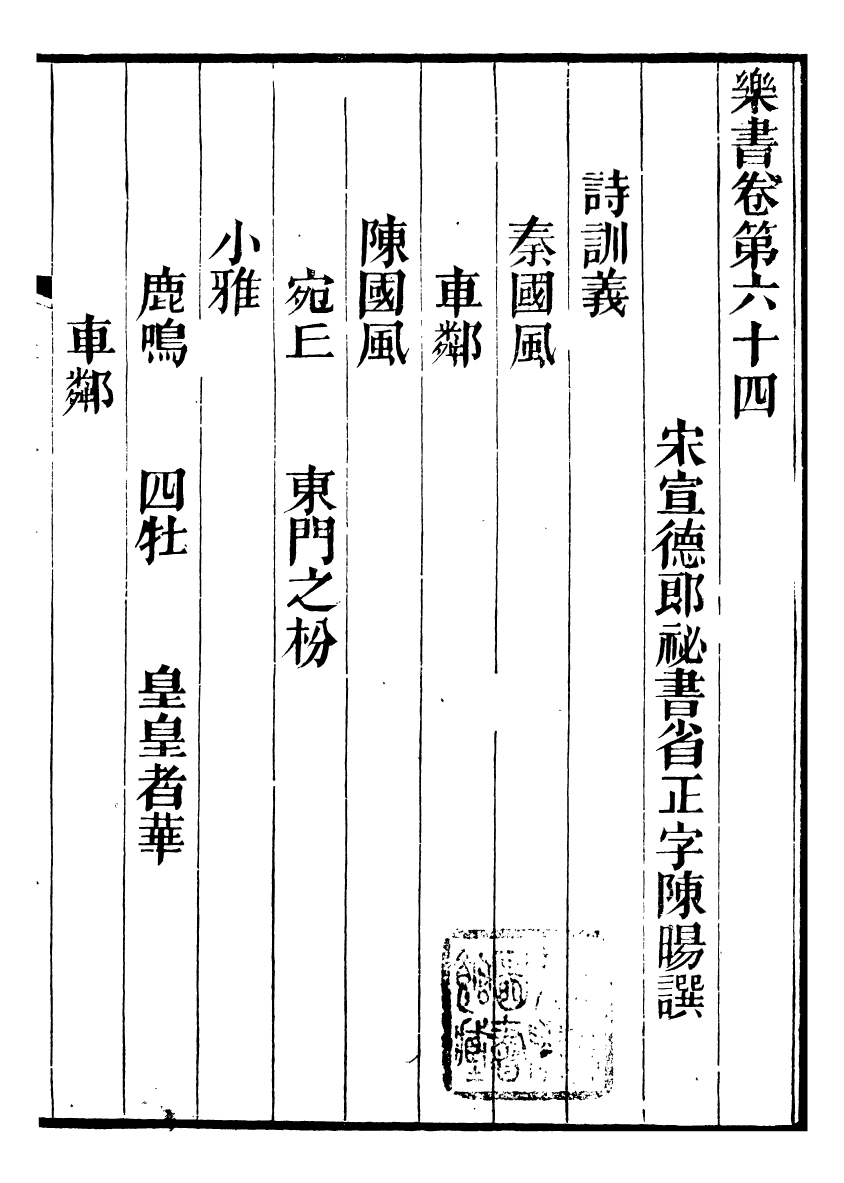 樂書卷第六十四
宋宣德郎祕書省正字陳暘譔
詩訓義
秦國風
車鄰
陳國風
宛丘 東門之枌
小雅
鹿鳴 四牡 皇皇者華
車鄰